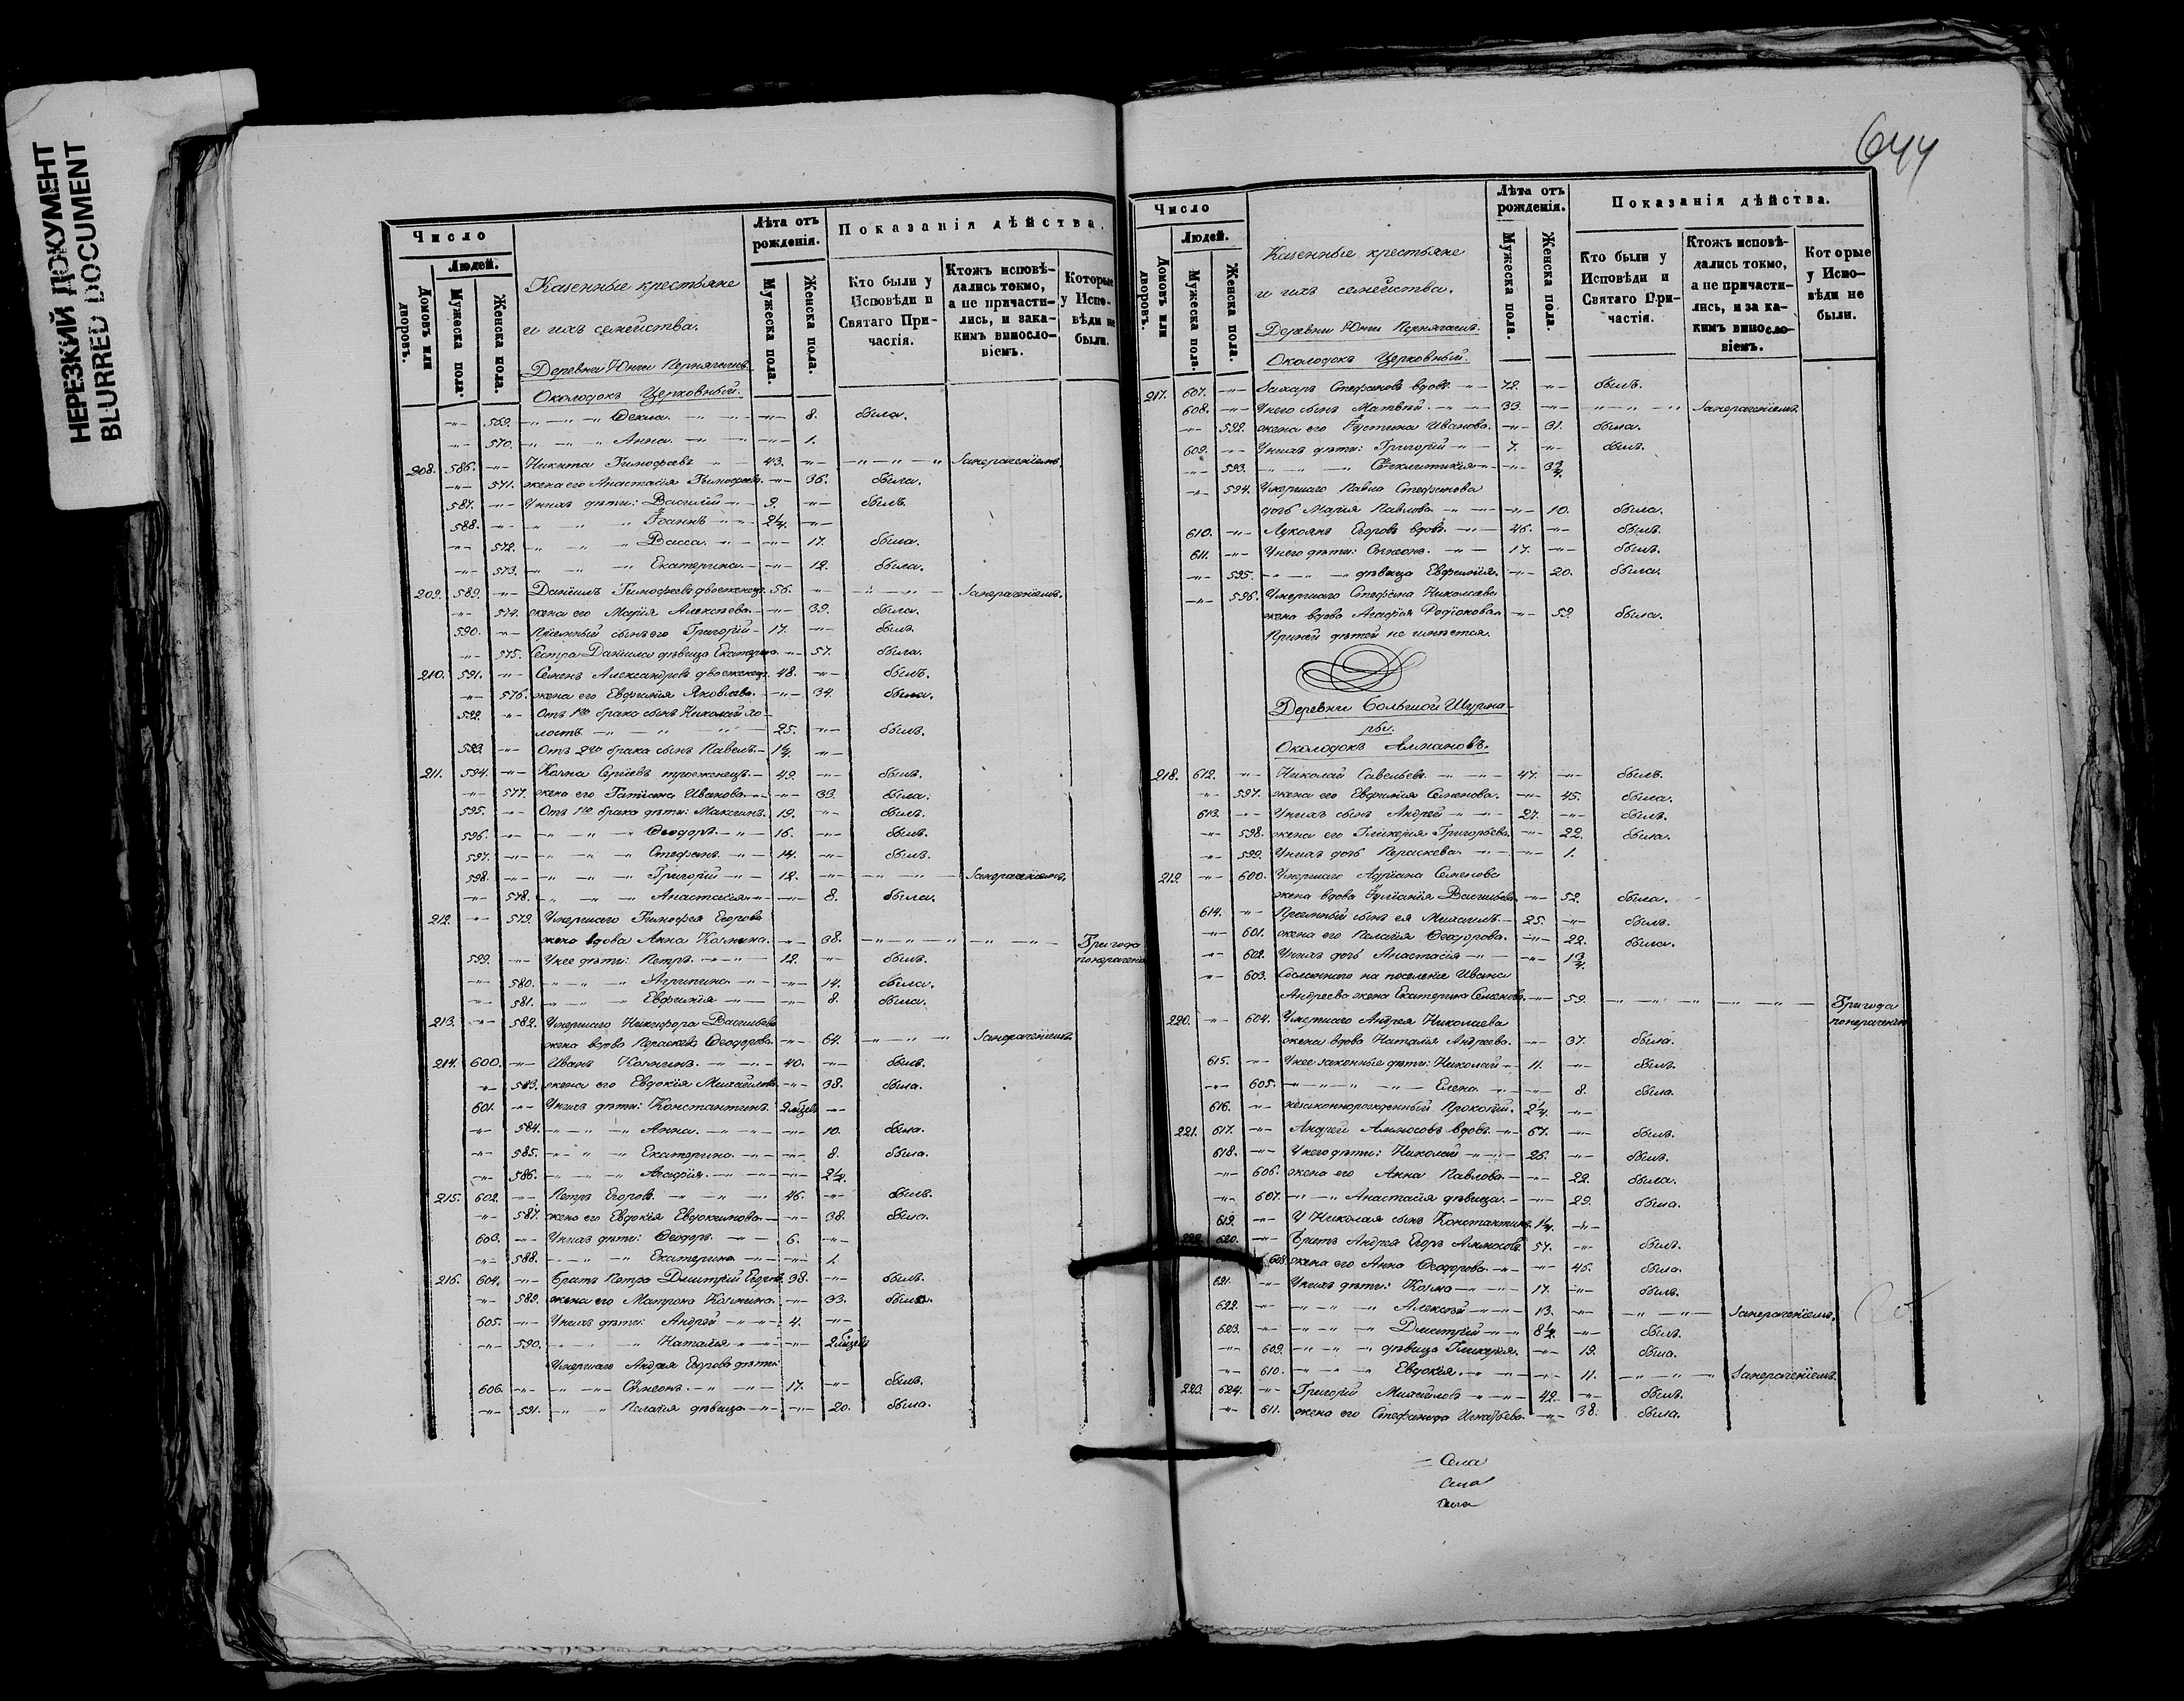 НЕРЕЗКИЙ ДОКУМЕНТ
BLURRED DOCUMENT
Число
Людей.
Домовъ или дворовъ.
Мужеска пола.
Женска пола.
Казенные крестьяне
и ихъ семейства.
Деревни Юнги
Околодокъ Церковный.
Лѣта отъ рожденія.
Мужеска пола.
Женска пола.
Показанія дѣйства.
Кто были у Исповѣди и Святаго Причастія.
Ктожъ исповѣдались токмо, а не причастились, и за какимъ винословіемъ.
Которые у Исповѣди не были.
569. Ѳекла. 8. была.
570. Анна. 1.
208. 586. Никита Тимофеевъ 43. Занераченіемъ.
571. жена его Анастасія Тимофеева. 36. была.
587. У нихъ дѣти: Василій 9. былъ.
588. Іоаннъ 2¼.
572. Васса. 17. была.
573. Екатерина. 12. была.
209. 589. Даніилъ Тимофеевъ двоеженецъ. 56. Занераченіемъ.
574. жена его Марія Алексѣева. 39. была.
590. Пріемный сынъ его Григорій 17. былъ.
575. Сестра Даніила дѣвица Екатерина. 57. была.
210. 591. Семенъ Александровъ двоеженецъ. 48. былъ.
576. жена его Евфимія Яковлева. 34. была.
592. Отъ 1го брака сынъ Николай хо-
лостъ 25. былъ.
593. Отъ 2го брака сынъ Павелъ. 1¼.
211. 594. Козма Сергѣевъ троеженецъ. 49. былъ.
577. жена его Татіана Иванова. 33. была.
595. Отъ 1го брака дѣти: Максимъ. 19. былъ.
596. Ѳеодоръ. 16. былъ.
597. Стефанъ. 14. былъ.
598. Григорій 12. Занераченіемъ.
578. Анастасія 8. была.
212. 579. Умершаго Тимофея Егорова
жена вдова Анна Козмина. 38. Три года
599. У нее дѣти: Петръ. 12. былъ. понерачению
580. Агрипина 14. была.
581. Евфимія 8. была.
213. 582. Умершаго Никифора Васильева
жена вдова Параскева Ѳеодорова. 64. Занераченіемъ.
214. 600. Иванъ Козминъ. 40. былъ.
583. жена его Евдокія Михайлова. 38. была.
601. У нихъ дѣти: Константинъ. 2 мѣсяц.
584. Анна. 10. была.
585. Екатерина. 8. была.
586. Агафія. 2¼.
215. 602. Петръ Егоровъ. 46. былъ.
587. жена его Евдокія Евдокимова. 38. была.
603. У нихъ дѣти: Ѳеодоръ. 6.
588. Екатерина 1.
216. 604. Братъ Петра Дмитрій Егоровъ. 38. былъ.
589. жена его Матрона Козмина. 33. была.
605. У нихъ дѣти: Андрей 4.
590. Наталья 2 мѣсяц
Умершаго Андрея Егорова дѣти:
606. Сѵмеонъ. 17. былъ.
591. Пелагія дѣвица 20. была.
644
Число
Людей.
Домовъ или дворовъ.
Мужеска пола.
Женска пола.
Казенные крестьяне
и ихъ семейства.
Деревни Юнги
Околодокъ Церковный.
Лѣта отъ рожденія.
Мужеска пола.
Женска пола.
Показанія дѣйства.
Кто были у Исповѣди и Святаго Причастія.
Ктожъ исповѣдались токмо, а не причастились, и за какимъ винословіемъ.
Которые у Исповѣди не были.
217. 607. Захаръ Стефановъ вдовъ. 72. былъ.
608. У него сынъ Матвѣй. 33. Занераченіемъ.
592. жена его Іустина Иванова. 31. была.
609. У нихъ дѣти: Григорій 7. былъ.
593. 3¾.
594. Умершаго Павла Стефанова
дочь Марія Павлова 10. была.
610. Лукоянъ Егоровъ вдовъ. 46. былъ.
611. У него дѣти: Сѵмеонъ. 17. былъ.
595. дѣвица Евфимія. 20. была.
596. Умершаго Стефана Николаева
жена вдова Агафія Родіонова 59. была.
При ней дѣтей не имѣется.
Деревни Большой Шурма-
ры.
Околодокъ
218. 612. Николай Савельевъ 47. былъ.
597. жена его Евфимія Семенова. 45. была.
613. У нихъ сынъ Андрей 27. былъ.
598. жена его Гликерія Григорьева. 22. была.
599. У нихъ дочь Параскева. 1.
219. 600. Умершаго Адріана Семенова
жена вдова Іуліанія Васильева 52. была.
614. Пріемный сынъ ея Михаилъ. 25. былъ.
601. жена его Пелагія Ѳеодорова. 22. была.
602. У нихъ дочь Анастасія 1¾.
603. Сосланнаго на поселеніе Ивана
Андреева жена Екатерина Семенова. 59. Три года
220. 604. Умершаго Андрея Николаева понерачению
жена вдова Наталія Андреева. 37. была.
615. У нее законные дѣти: Николай 11. былъ.
605. Елена 8. была.
616. незаконнорожденный Прокопій. 2¼.
221. 617. Андрей Аммосовъ вдовъ. 67. былъ.
618. У него дѣти: Николай 26. былъ.
606. жена его Анна Павлова. 22. была.
607. Анастасія дѣвица. 29. была.
619. У Николая сынъ Константинъ. 1¼.
222. 620. Братъ Андрея Егоръ Аммосовъ. 57. былъ.
608. жена его Анна Ѳеодорова. 45. была.
621. У нихъ дѣти: Козма 17. былъ.
622. Алексѣй 13. Занераченіемъ.
623. Дмитрій 8½. былъ.
609. дѣвица Гликерія. 19. была.
610. Евдокія. 11. Занераченіемъ.
223. 624. Григорій Михайловъ 42. былъ.
611. жена его Стефанида Игнатьева. 38. была.
Села
Села